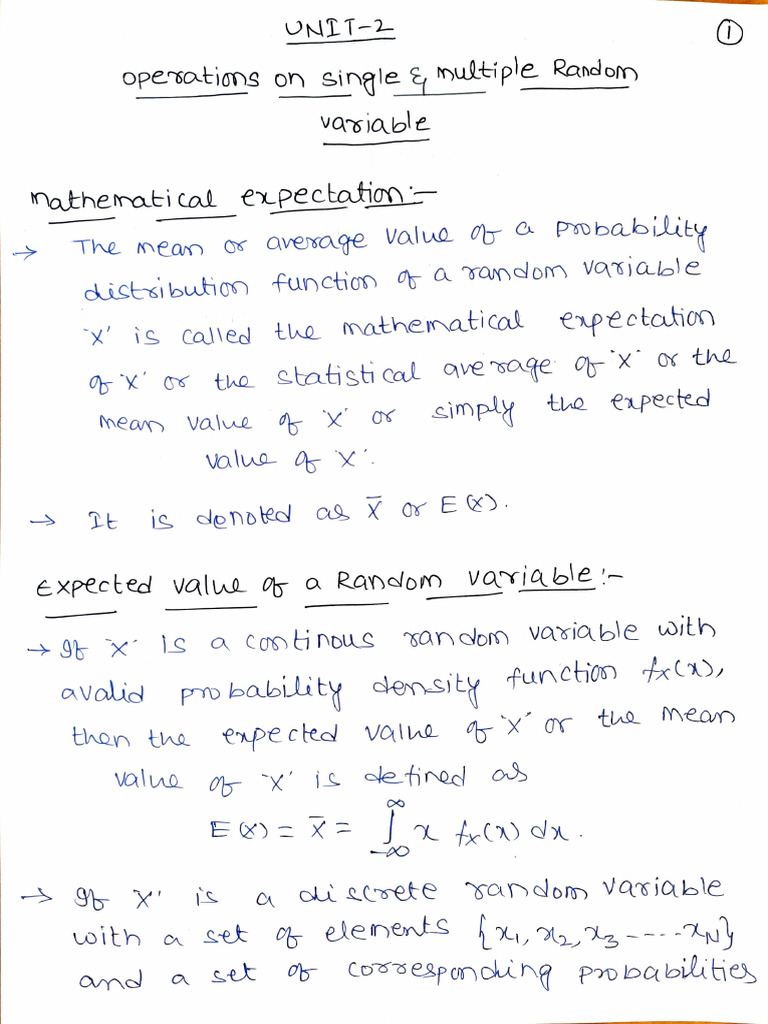 UNIT-2
①
operations on single & multiple Random
variable
Mathematical expectation:-
→ The mean or average value of a probability
distribution function of a random variable
'X' is called the mathematical expectation
of 'X' or the statistical average of 'X' or the
mean value of 'X' or simply the expected
value of 'X'.
→ It is denoted as X̅ or E(X).
Expected value of a Random variable:-
→ If 'X' is a continous random variable with
avalid probability density function fx(x),
then the expected value of 'X' or the mean
value of 'X' is defined as
E(X) = X̅ = ∫_{-∞}^{∞} x fx(x) dx.
→ If 'X' is a discrete random variable
with a set of elements {x₁, x₂, x₃ -----xN}
and a set of corresponding probabilities